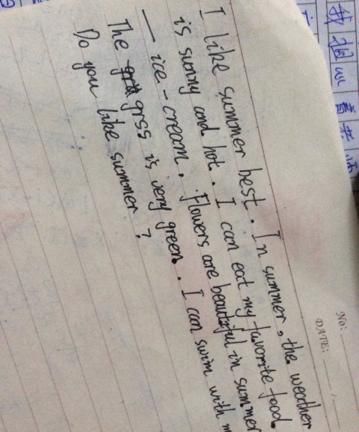 No:
DATE:
I like summer best. In summer, the weather
is sunny and hot. I can eat my favorite food
— ice-cream. Flowers are beautiful in summer
The grss is very green. I can swim with m
Do you like summer?